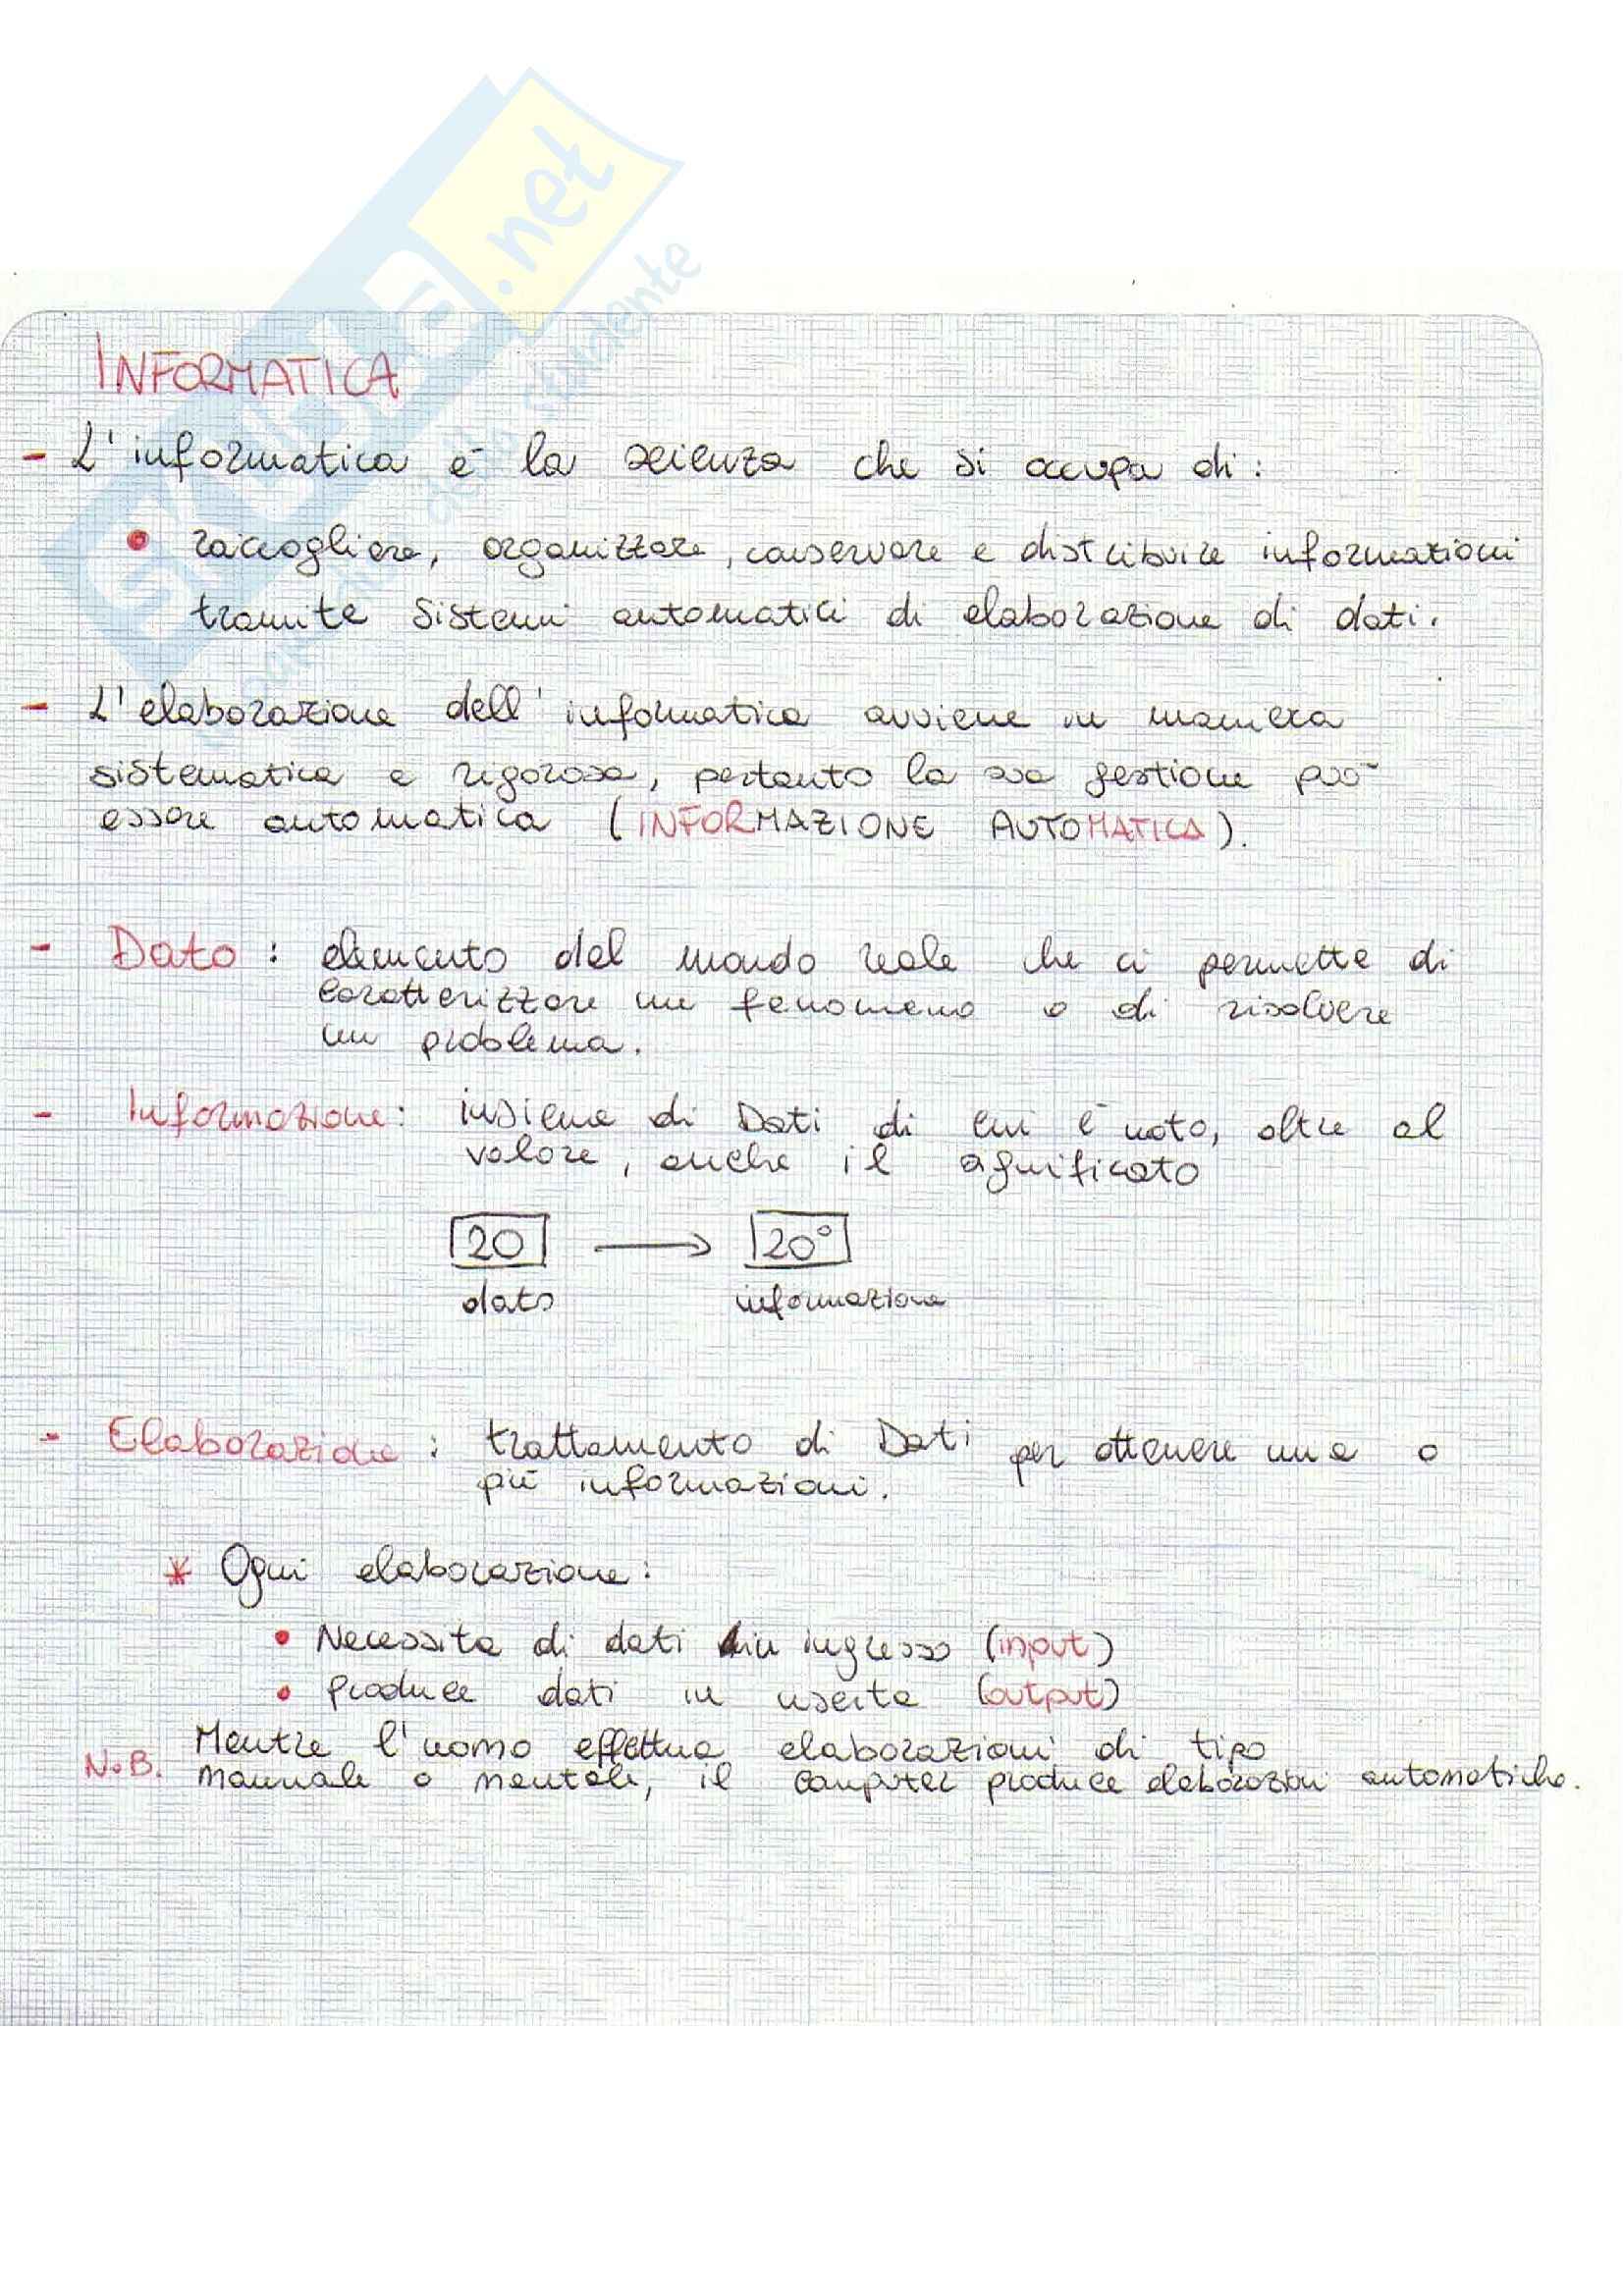 SKUOLA.net
INFORMATICA
- L'informatica è la scienza che si occupa di:
• raccogliere, organizzare, conservare e distribuire informazioni
tramite sistemi automatici di elaborazione di dati.
- L'elaborazione dell'informatica avviene in maniera
sistematica e rigorosa, pertanto la sua gestione può
essere automatica (INFORMAZIONE AUTOMATICA).
- Dato: elemento del mondo reale che ci permette di
caratterizzare un fenomeno o di risolvere
un problema.
- Informazione: insieme di Dati di cui è noto, oltre al
valore, anche il significato
20 → 20°
dato informazione
- Elaborazione: trattamento di Dati per ottenere una o
più informazioni.
* Ogni elaborazione:
• Necessita di dati in ingresso (input)
• produce dati in uscita (output)
N.B. Mentre l'uomo effettua elaborazioni di tipo
manuale o mentale, il computer produce elaborazioni automatiche.